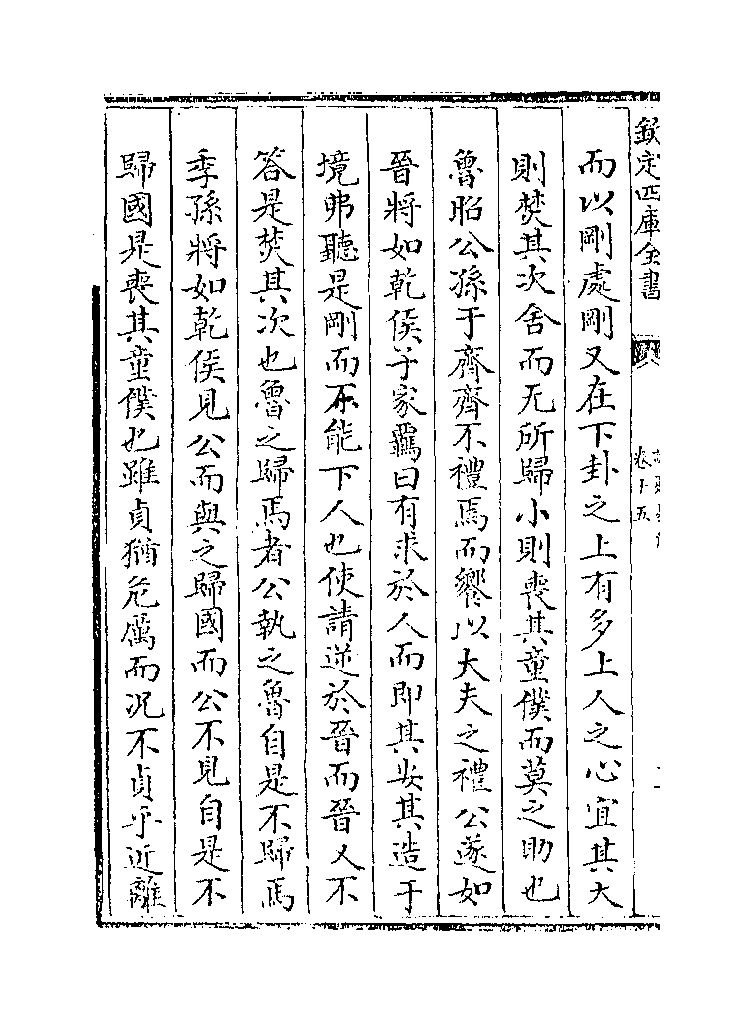 欽定四庫全書
卷十五
而以剛處剛又在下卦之上有多上人之心宜其大
則焚其次舍而无所歸小則喪其童僕而莫之助也
魯昭公孫于齊齊不禮焉而饗以大夫之禮公遂如
晉將如乾侯子家羈曰有求於人而即其安其造于
境弗聽是剛而不能下人也使請逆於晉而晉人不
答是焚其次也魯之歸馬者公執之魯自是不歸馬
季孫將如乾侯見公而與之歸國而公不見自是不
歸國是喪其童僕也雖貞猶危厲而况不貞乎近離